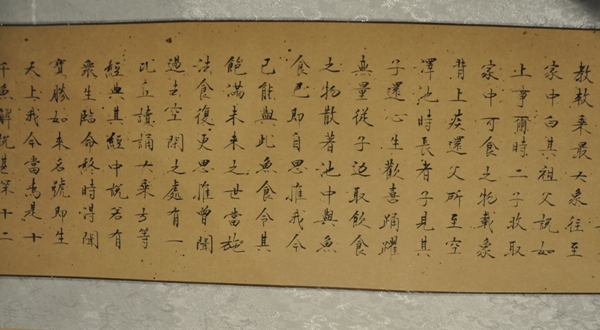 教敕乘最大象往至
家中白其祖父說如
上事爾時二子收取
家中可食之物載象
背上疾還父所至空
澤池時長者子見其
子還心生歡喜踊躍
無量從子邊取飲食
之物散著池中與魚
食已即自思惟我今
已能與此魚食令其
飽滿未來之世當施
法食復更思惟曾聞
過去空閑之處有一
比丘讀誦大乘方等
經典其經中說若有
衆生臨命終時得聞
寶勝如来名號即生
天上我今當為是十
千魚解說甚深十二